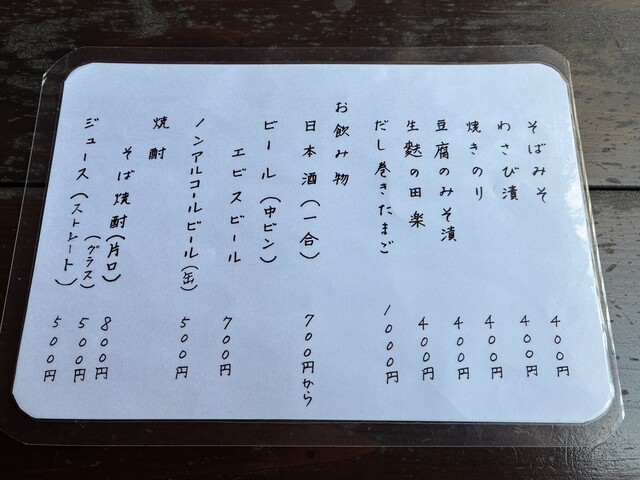 そばみそ 400円
わさび漬 400円
焼きのり 400円
豆腐のみそ漬 400円
生麩の田楽 400円
だし巻きたまご 1000円
お飲み物
日本酒(一合) 700円から
ビール(中ビン)
エビスビール 700円
ノンアルコールビール(缶) 500円
焼酎
そば焼酎(片口) 800円
(グラス) 500円
ジュース(ストレート) 500円